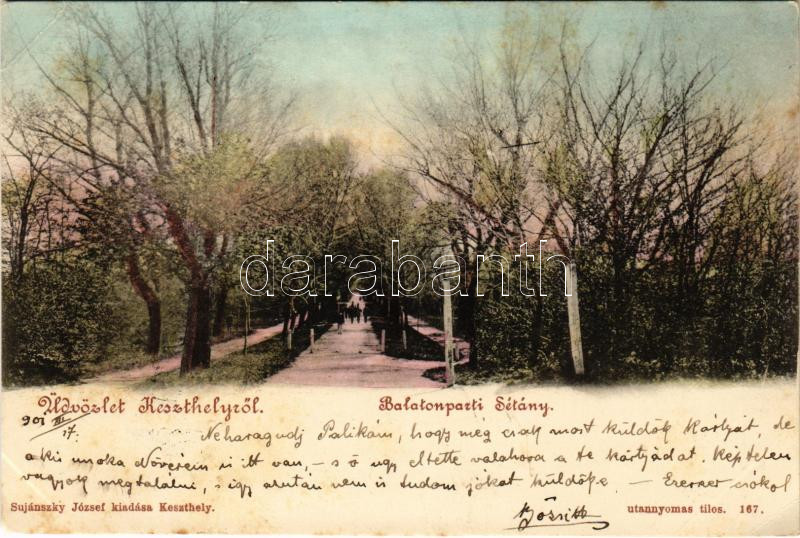 darabanth
Üdvözlet Keszthelyről.
Balatonparti Sétány.
901 III/17.
Neharagudj Palikám, hogy még csak most küldök kártyát, de
a kis unoka Nővérem is itt van, – s ő ugy eltette valahova a te kártyádat. Képtelen
vagyok megtalálni, s igy azután nem is tudom jókat küldök-e. – Ezerszer csókol
Sujánszky József kiadása Keszthely.
utannyomas tilos. 167.